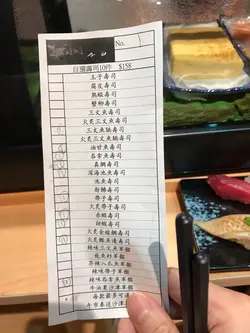 No.
自選壽司10件 $158
玉子壽司
腐皮壽司
熟蝦壽司
蟹柳壽司
三文魚壽司
火炙三文魚壽司
三文魚腩壽司
火炙三文魚腩壽司
油甘魚壽司
吞拿魚壽司
真鯛壽司
深海池魚壽司
池魚壽司
劍魚壽司
帶子壽司
火炙帶子壽司
赤蝦壽司
甜蝦壽司
火炙
魚邊壽司
辣味三文魚軍艦
魚籽軍艦
芥辣八爪魚軍艦
辣味帶子軍艦
每款最多可選
午市奉送沙津